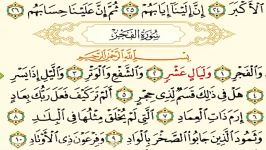 ٱلْأَكْبَرَ ﴿٢٤﴾ إِنَّ إِلَيْنَآ إِيَابَهُمْ ﴿٢٥﴾ ثُمَّ إِنَّ عَلَيْنَا حِسَابَهُم ﴿٢٦﴾
سُورَةُ الْفَجْرِ
بِسْمِ ٱللَّهِ ٱلرَّحْمَٰنِ ٱلرَّحِيمِ
وَٱلْفَجْرِ ﴿١﴾ وَلَيَالٍ عَشْرٍ ﴿٢﴾ وَٱلشَّفْعِ وَٱلْوَتْرِ ﴿٣﴾ وَٱلَّيْلِ إِذَا يَسْرِ
﴿٤﴾ هَلْ فِي ذَٰلِكَ قَسَمٌ لِّذِي حِجْرٍ ﴿٥﴾ أَلَمْ تَرَ كَيْفَ فَعَلَ رَبُّكَ بِعَادٍ
﴿٦﴾ إِرَمَ ذَاتِ ٱلْعِمَادِ ﴿٧﴾ ٱلَّتِي لَمْ يُخْلَقْ مِثْلُهَا فِي ٱلْبِلَٰدِ ﴿٨﴾
وَثَمُودَ ٱلَّذِينَ جَابُوا۟ ٱلصَّخْرَ بِٱلْوَادِ ﴿٩﴾ وَفِرْعَوْنَ ذِي ٱلْأَوْتَادِ ﴿١٠﴾